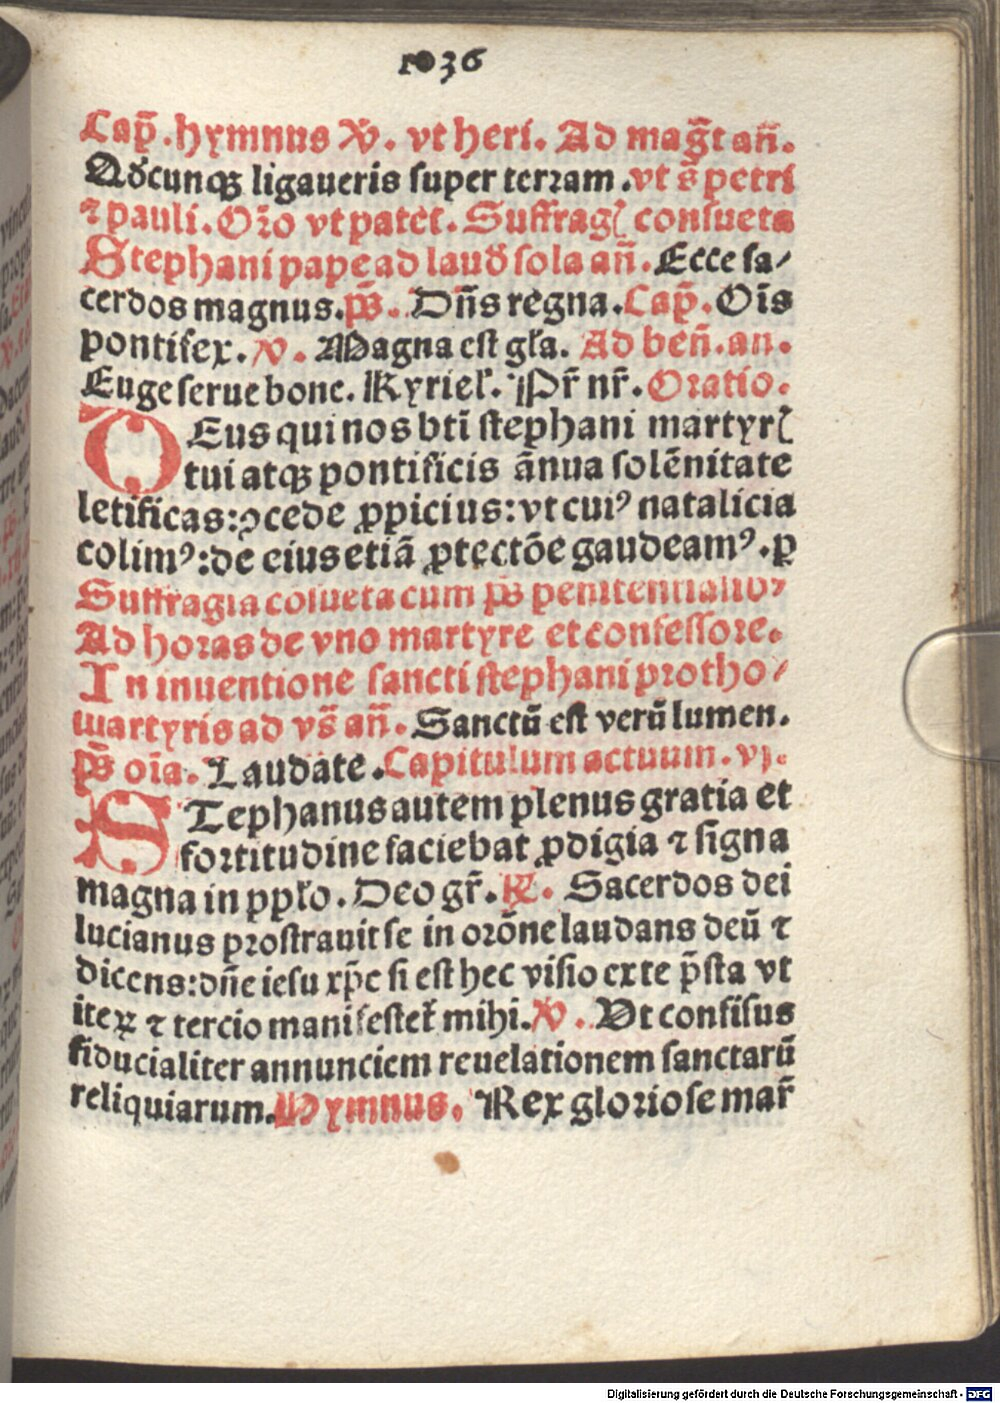 1036
Cap̄. hymnus ℣. vt heri. Ad mag̃t an̄.
Qd̕cunqꝫ ligaueris super terram. vt s̄ petri
⁊ pauli. Oꝛo vt patet. Suffrag̨ consueta
Stephani pape ad laud̕ sola an̄. Ecce sa⸗
cerdos magnus. ps̄. Dn̄s regna. Cap̄. Oīs
pontifex. ℣. Magna est gl̄a. Ad ben̄. an.
Euge serue bone. Kyriel̕. Pr̄ nr̄. Oratio.
DEus qui nos bt̄i stephani martyrꝭ
tui atqꝫ pontificis ānua solēnitate
letificas: ꝯcede ꝓpicius: vt cuiꝰ natalicia
colimꝰ: de eius etiā ꝓtectōe gaudeamꝰ. ꝑ
Suffragia cōsueta cum ps̄ penitentialibꝰ
Ad horas de vno martyre et confessore.
In inuentione sancti stephani protho⸗
martyris ad vs̄ an̄. Sanctū est verū lumen.
ps̄ oīa. Laudate. Capitulum actuum. vj.
STephanus autem plenus gratia et
fortitudine faciebat ꝓdigia ⁊ signa
magna in ppl̄o. Deo gr̄. ℟. Sacerdos dei
lucianus prostrauit se in orōne laudans deū ⁊
dicens: dn̄e iesu xp̄e si est hec visio ex te p̄sta vt
iteꝝ ⁊ tercio manifestet̕ mihi. ℣. Vt confisus
fiducialiter annunciem reuelationem sanctarū
reliquiarum. Hymnus. Rex gloriose mar̄
Digitalisierung gefördert durch die Deutsche Forschungsgemeinschaft - DFG